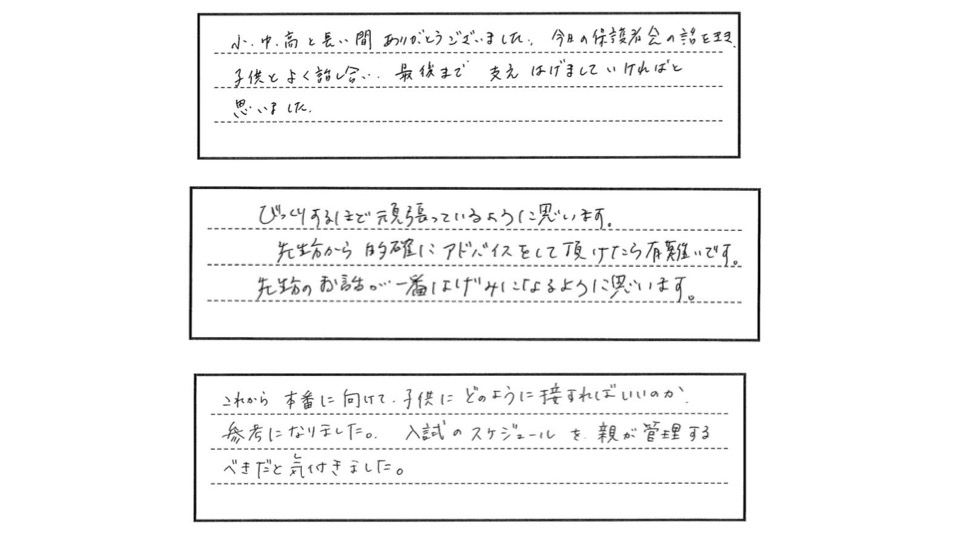 小、中、高と長い間 ありがとうございました。今日の保護者会の話を聞き、
子供とよく話し合い、最後まで 支え はげましていければと
思いました。
びっくりするほど頑張っているように思います。
先生方から 的確に アドバイスをして頂けたら有難いです。
先生方のお話が一番はげみになるように思います。
これから 本番に向けて、子供に どのように接すればいいのか、
参考になりました。 入試のスケジュールを、親が管理する
べきだと気付きました。